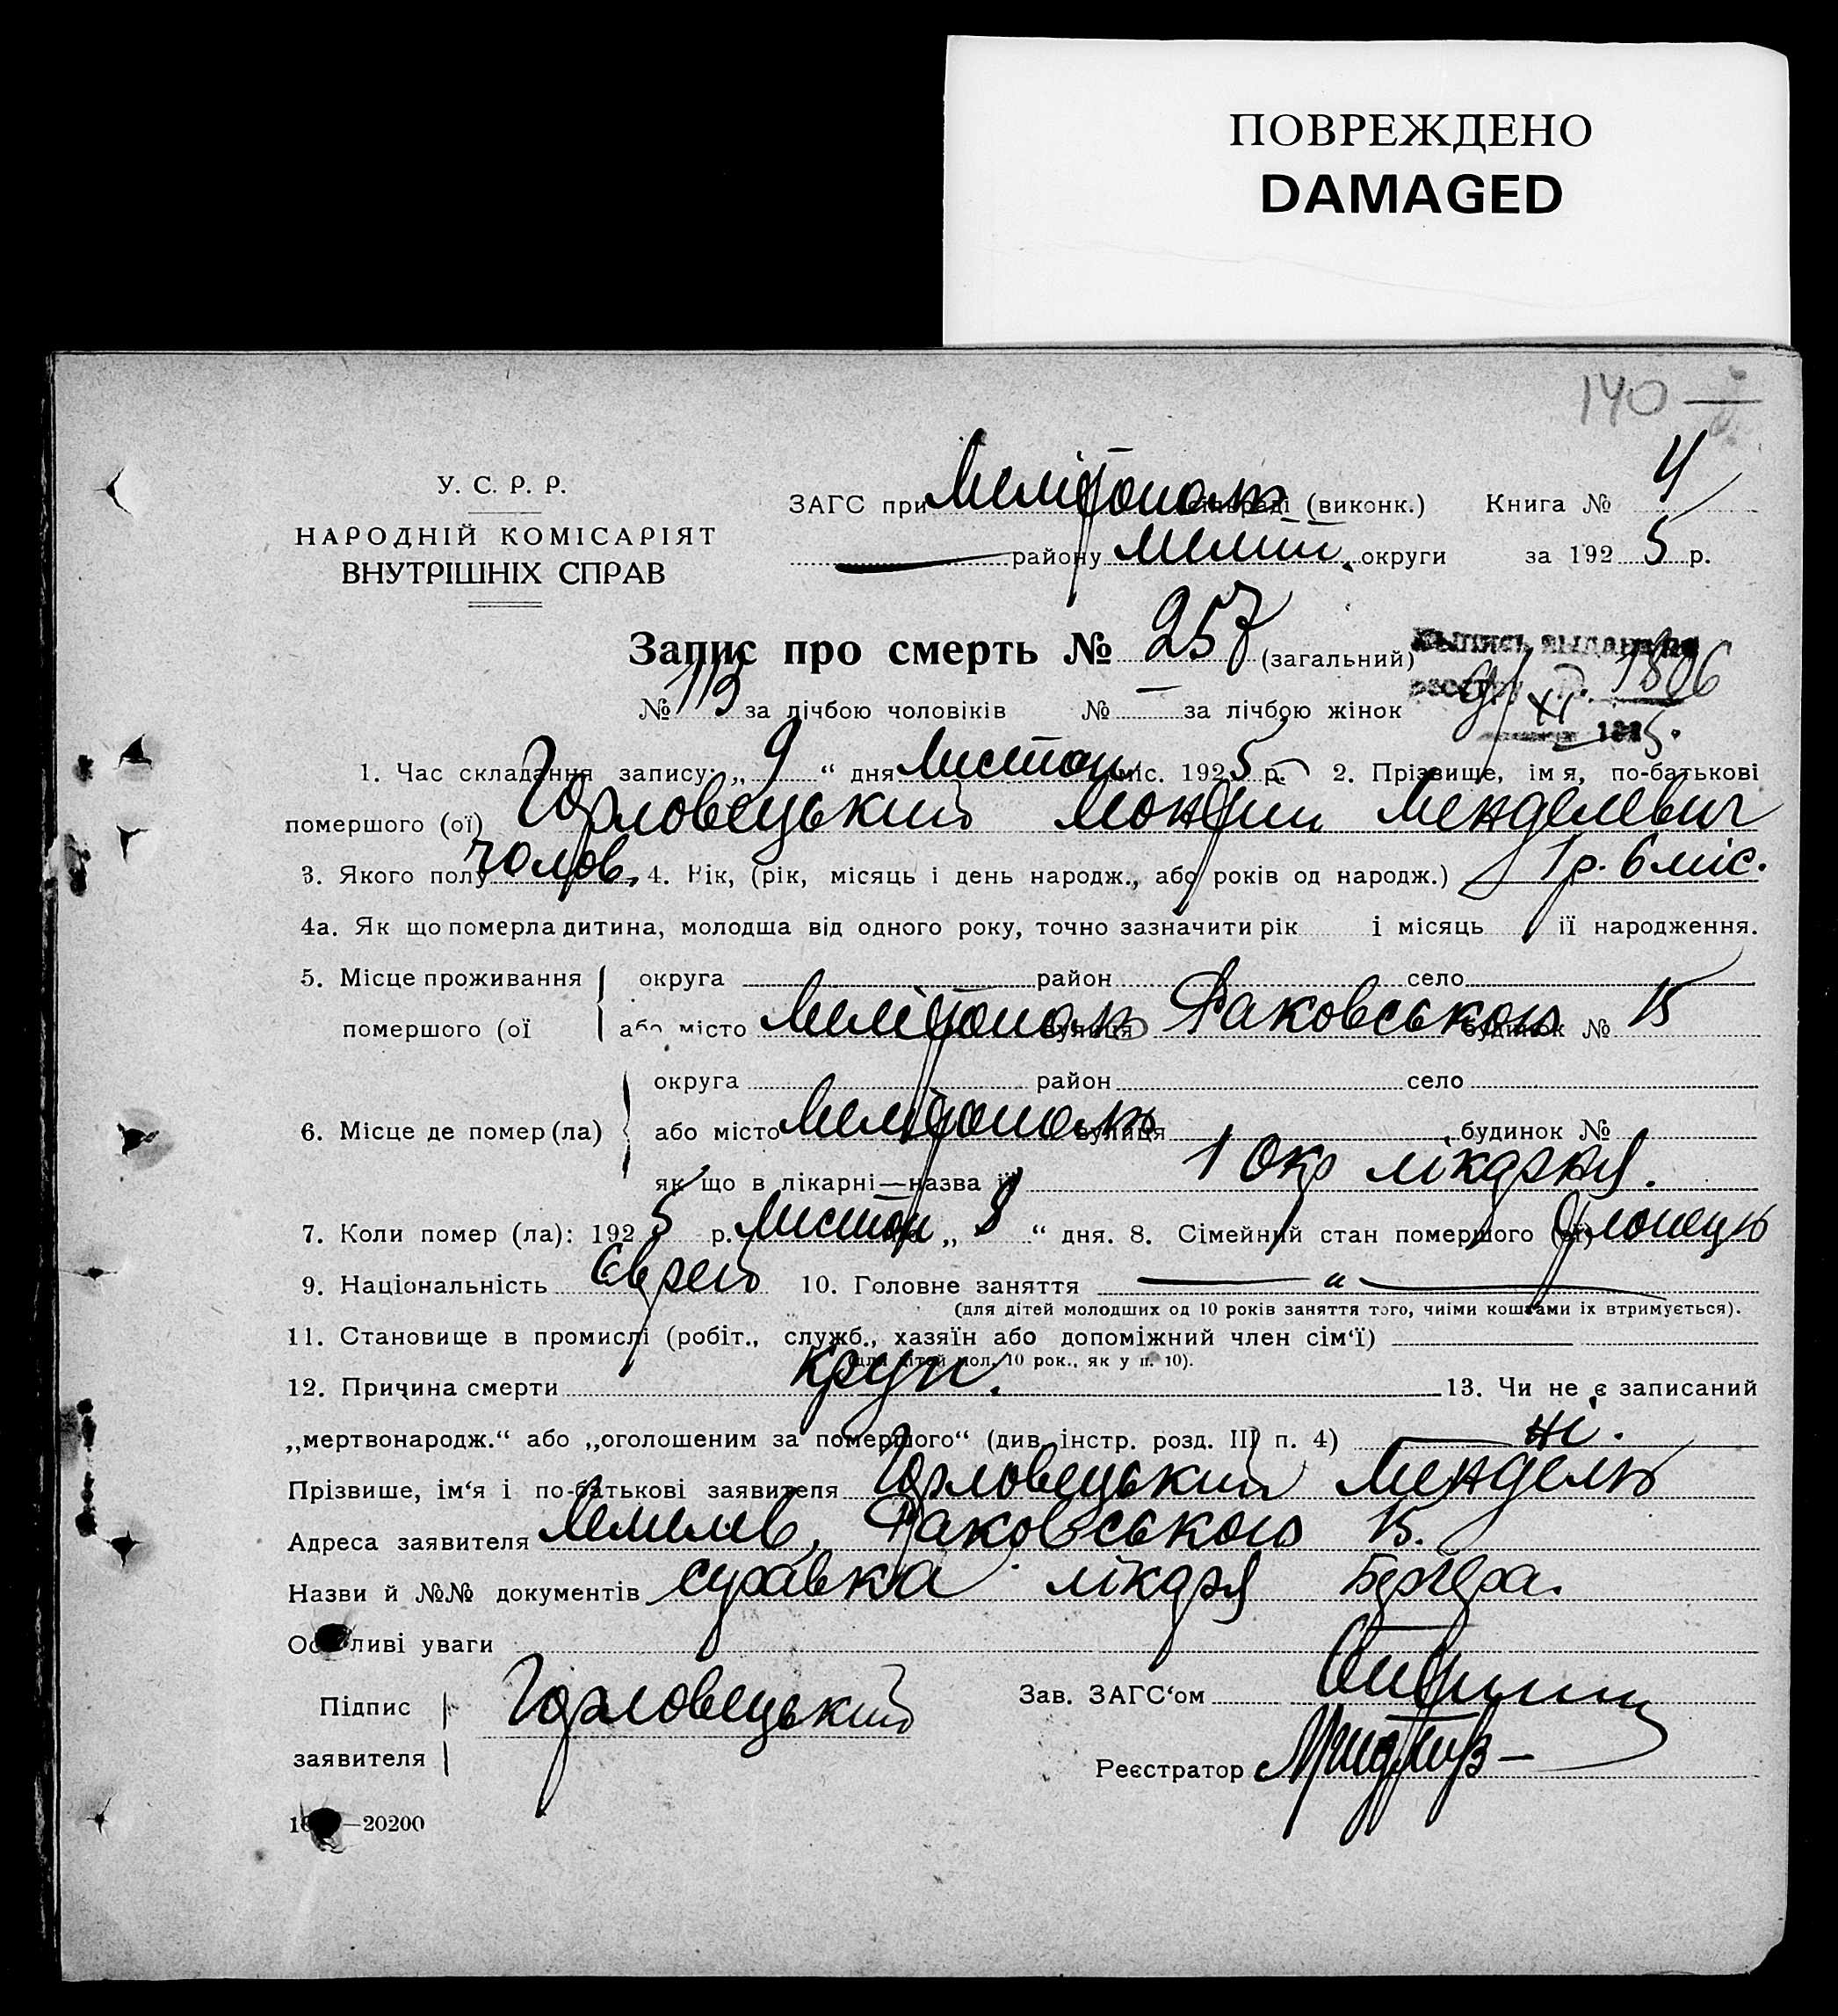 ПОВРЕЖДЕНО
DAMAGED
140
У. С. Р. Р.
НАРОДНІЙ КОМІСАРІЯТ
ВНУТРІШНІХ СПРАВ
ЗАГС при Мелітополь (виконк.) Книга № 4
району Меліт. округи за 192 5 р.
Запис про смерть № 257 (загальний)
Выпись выдана по
реестру 1806
9/XI 1925.
№ 113 за лічбою чоловіків № — за лічбою жінок
1. Час складання запису: „ 9 “ дня Листоп. міс. 192 5 р. 2. Прізвище, імя, по-батькові
помершого (ої) Горловецький Менделевич
3. Якого полу Чолов. 4. Рік, (рік, місяць і день народж., або років од народж.) 1 р. 6 міс.
4а. Як що померла дитина, молодша від одного року, точно зазначити рік і місяць її народження.
5. Місце проживання округа район село
помершого (ої або місто Мелітополь вулиця Раковського будинок № 15
округа район село
6. Місце де помер (ла) або місто Мелітополь вулиця будинок №
як що в лікарні—назва її 1 Окр лікарня.
7. Коли помер (ла): 192 5 р. Листоп „ 8 “ дня. 8. Сімейний стан помершого (ої) хлопець
9. Національність Єврей 10. Головне заняття — „ —
(для дітей молодших од 10 років заняття того, чиїми коштами їх втримується).
11. Становище в промислі (робіт., служб., хазяїн або допоміжний член сім‘ї)
(для дітей мол. 10 рок., як у п. 10).
12. Причина смерти Круп. 13. Чи не є записаний
„мертвонародж.“ або „оголошеним за помершого“ (див. інстр. розд. III п. 4) — ні.
Прізвище, ім‘я і по-батькові заявителя Горловецький Мендель
Адреса заявителя Раковського 15.
Назви й №№ документів справка лікаря Бергера.
Ос ливі уваги
Підпис
заявителя
Горловецький
Зав. ЗАГС‘ом
Реєстратор
—20200